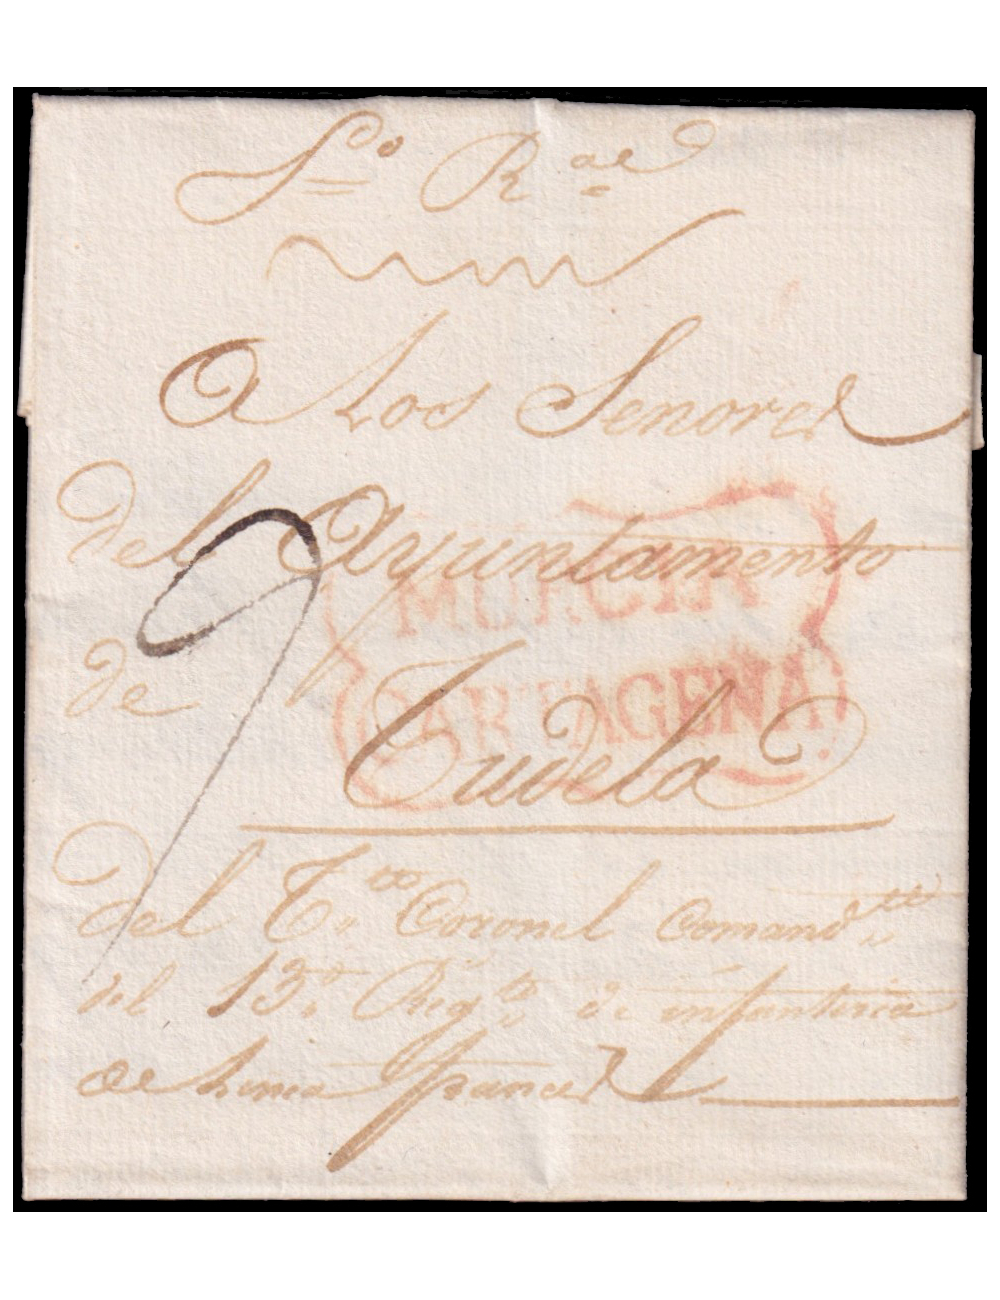 Sᵈᵒ Rᵃˡ
A Los Senores
del Ayuntamento
de
Tudela
MURCIA
CARTAGENA
9
del Tᵗᵒ Coronel Comandᵗᵉ
del 13º Regᵗᵒ de infanteria
de Linea frances